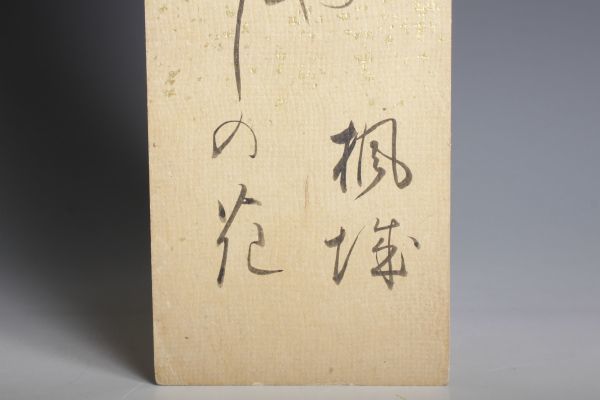 楓城
の花